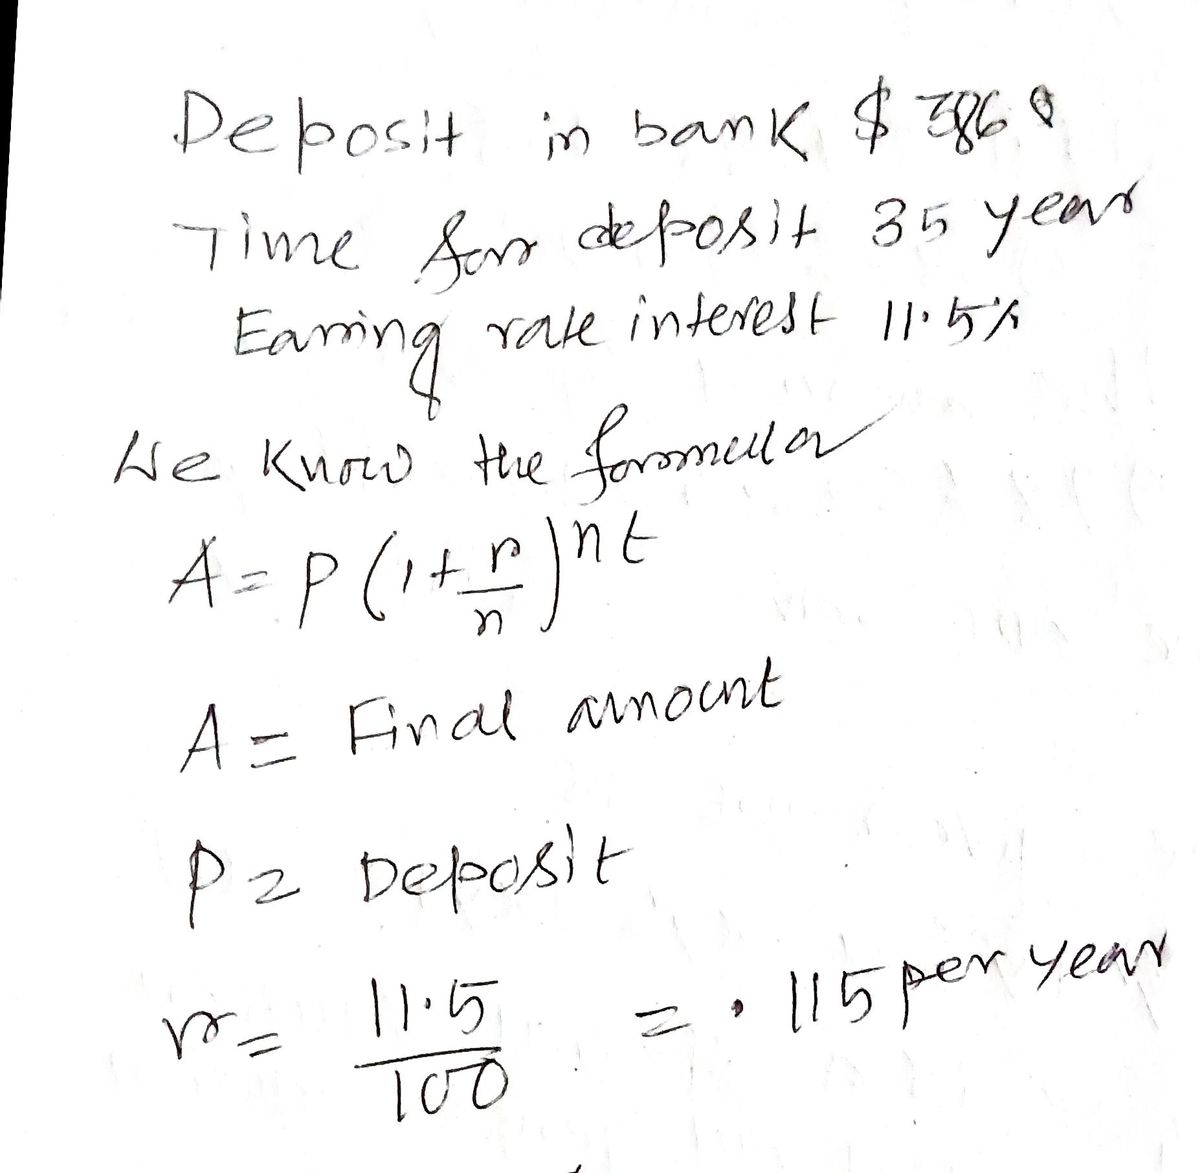 Deposit in bank $ 3860
Time for deposit 35 year
Earning rate interest 11.5%
We know the formular
A = P (1 + r/n)^nt
A = Final amount
P = Deposit
r = 11.5/100 = .115 per year